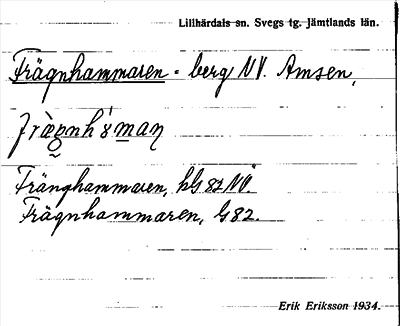 Lillhärdals sn. Svegs tg. Jämtlands län.
Frägnhammaren - berg NV. Amsen,
Fränghammaren, hG 82 NV
Frägnhammaren, G82.
Erik Eriksson 1934.